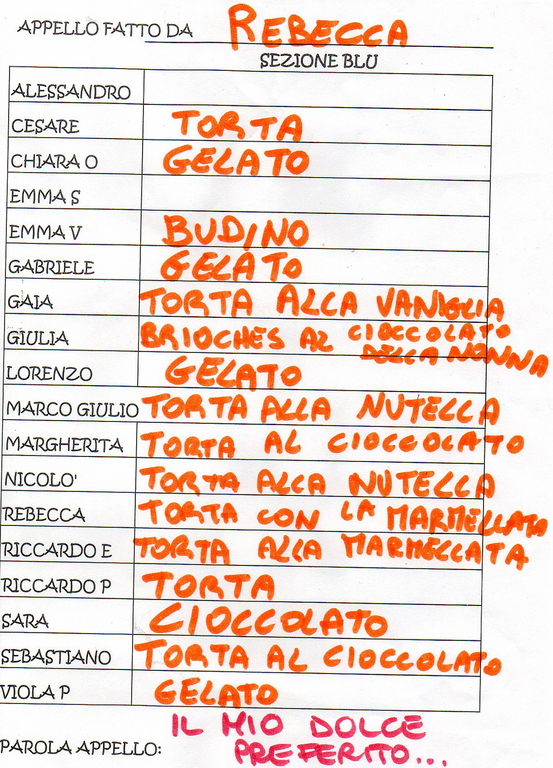 APPELLO FATTO DA REBECCA
SEZIONE BLU
ALESSANDRO
CESARE TORTA
CHIARA O GELATO
EMMA S
EMMA V BUDINO
GABRIELE GELATO
GAIA TORTA ALLA VANIGLIA
GIULIA BRIOCHES AL CIOCCOLATO
DELLA NONNA
LORENZO GELATO
MARCO GIULIO TORTA ALLA NUTELLA
MARGHERITA TORTA AL CIOCCOLATO
NICOLO' TORTA ALLA NUTELLA
REBECCA TORTA CON LA MARMELLATA
RICCARDO E TORTA ALLA MARMELLATA
RICCARDO P TORTA
SARA CIOCCOLATO
SEBASTIANO TORTA AL CIOCCOLATO
VIOLA P GELATO
IL MIO DOLCE
PAROLA APPELLO: PREFERITO...